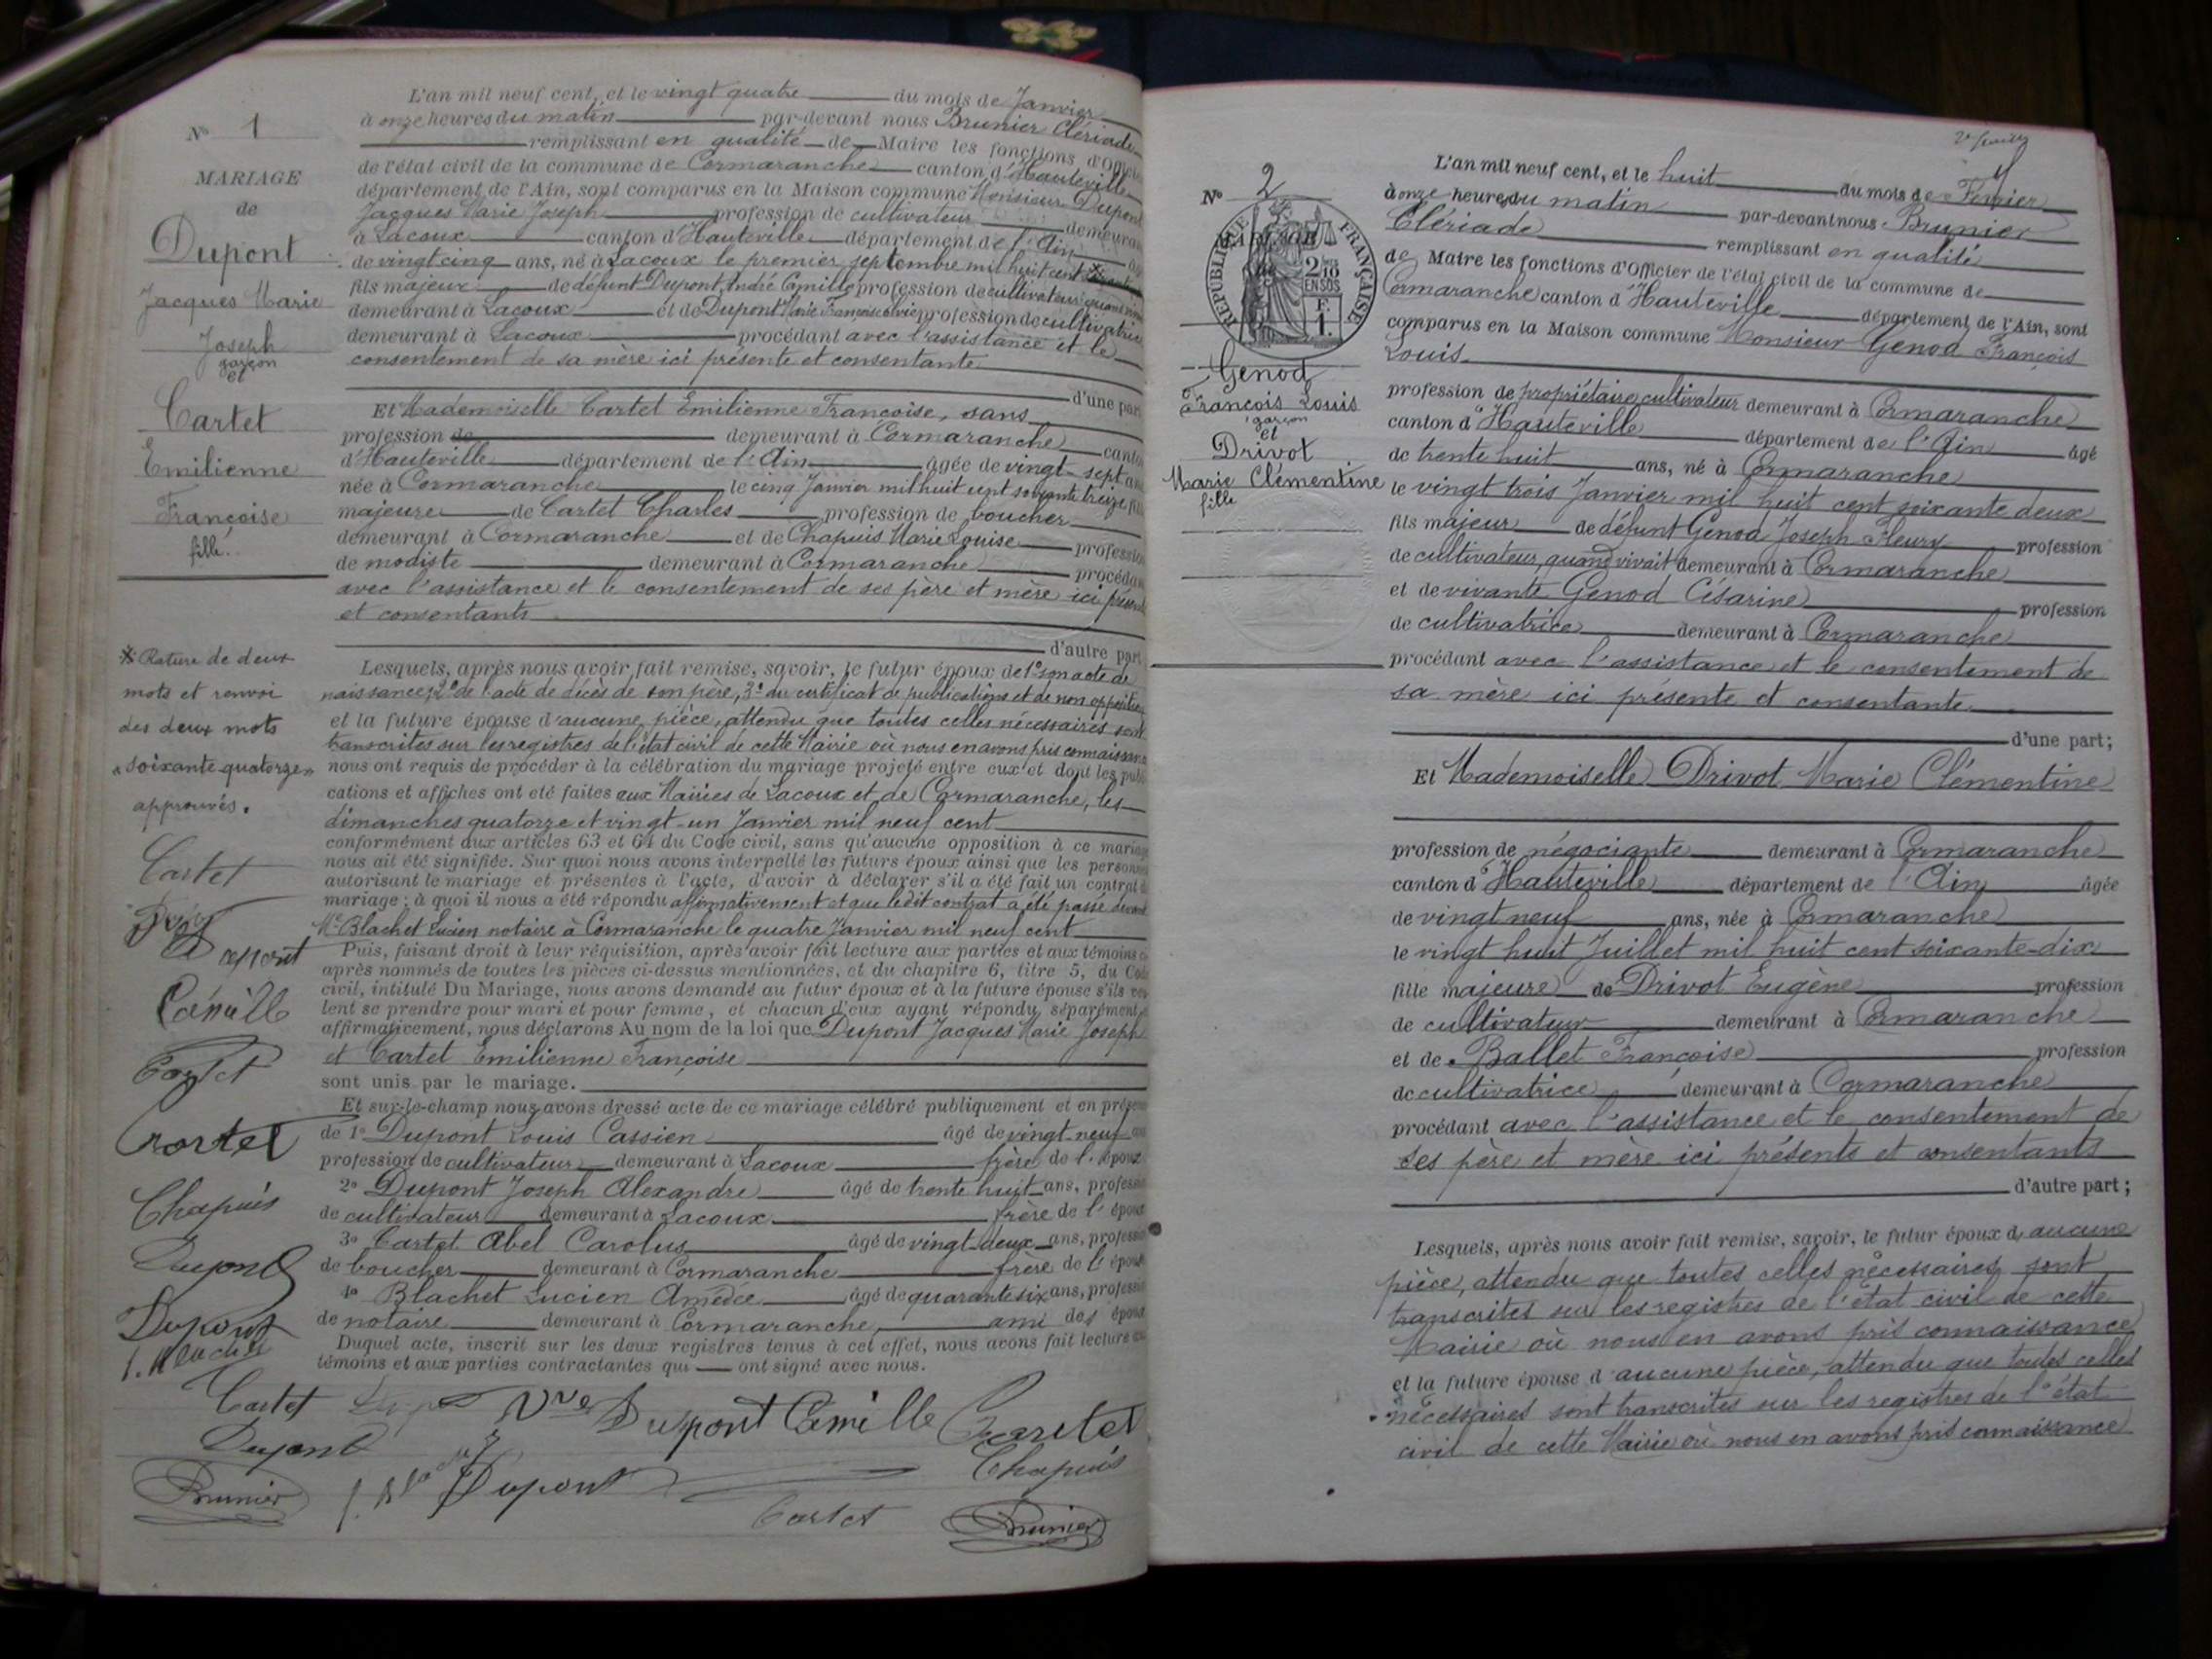 N° 1
MARIAGE
de
Dupont
Jacques Marie
Joseph
garçon
et
Cartet
Emilienne
Françoise
fille.
※ Rature de deux
mots et renvoi
des deux mots
« soixante-quatorze »
approuvés.
Cartet
Dupont
Camille
Cartet
Cartet
Chapuis
Dupont
Dupont
L'an mil neuf cent, et le vingt quatre du mois de Janvier
à onze heures du matin par-devant nous Brunier Clériade
remplissant en qualité de Maire les fonctions d'Officier
de l'état civil de la commune de Cormaranche canton d'Hauteville
département de l'Ain, sont comparus en la Maison commune Monsieur Dupont
Jacques Marie Joseph profession de cultivateur demeurant
à Lacoux canton d'Hauteville département de l'Ain
de vingt cinq ans, né à Lacoux le premier septembre mil huit cent ※
fils majeur de défunt Dupont André Camille profession de cultivateur quand vivait
demeurant à Lacoux et de Dupont Marie Françoise profession de cultivatrice
demeurant à Lacoux procédant avec l'assistance et le
consentement de sa mère ici présente et consentante
d'une part
Et Mademoiselle Cartet Emilienne Françoise, sans
profession de demeurant à Cormaranche canton
d'Hauteville département de l'Ain âgée de vingt-sept ans
née à Cormaranche le cinq Janvier mil huit cent soixante treize, fille
majeure de Cartet Charles profession de boucher
demeurant à Cormaranche et de Chapuis Marie Louise profession
de modiste demeurant à Cormaranche procédant
avec l'assistance et le consentement de ses père et mère ici présents
et consentants
d'autre part
Lesquels, après nous avoir fait remise, savoir, le futur époux de 1° son acte de
naissance, 2° de l'acte de décès de son père, 3° du certificat de publications et de non opposition
et la future épouse d'aucune pièce, attendu que toutes celles nécessaires sont
transcrites sur les registres de l'état civil de cette Mairie où nous en avons pris connaissance
nous ont requis de procéder à la célébration du mariage projeté entre eux et dont les publi
cations et affiches ont été faites aux Mairies de Lacoux et de Cormaranche, les
dimanches quatorze et vingt-un Janvier mil neuf cent
conformément aux articles 63 et 64 du Code civil, sans qu'aucune opposition à ce mariage
nous ait été signifiée. Sur quoi nous avons interpellé les futurs époux ainsi que les personnes
autorisant le mariage et présentes à l'acte, d'avoir à déclarer s'il a été fait un contrat de
mariage ; à quoi il nous a été répondu affirmativement et que ledit contrat a été passé devant
Me Blachet Lucien notaire à Cormaranche le quatre Janvier mil neuf cent
Puis, faisant droit à leur réquisition, après avoir fait lecture aux parties et aux témoins ci-
après nommés de toutes les pièces ci-dessus mentionnées, et du chapitre 6, titre 5, du Code
civil, intitulé Du Mariage, nous avons demandé au futur époux et à la future épouse s'ils veu
lent se prendre pour mari et pour femme, et chacun d'eux ayant répondu séparément
affirmativement, nous déclarons Au nom de la loi que Dupont Jacques Marie Joseph
et Cartet Emilienne Françoise
sont unis par le mariage.
Et sur-le-champ nous avons dressé acte de ce mariage célébré publiquement et en présence
de 1° Dupont Louis Cassien âgé de vingt-neuf ans
profession de cultivateur demeurant à Lacoux frère de l'époux
2° Dupont Joseph Alexandre âgé de trente huit ans, profession
de cultivateur demeurant à Lacoux frère de l'époux
3° Cartet Abel Carolus âgé de vingt-deux ans, profession
de boucher demeurant à Cormaranche frère de l'épouse
4° Blachet Lucien Amédée âgé de quarante six ans, profession
de notaire demeurant à Cormaranche, ami des époux
Duquel acte, inscrit sur les deux registres tenus à cet effet, nous avons fait lecture aux
témoins et aux parties contractantes qui ont signé avec nous.
Cartet Vve Dupont Camille Cartet
Dupont Chapuis
Brunier Dupont Cartet Brunier
N° 2
MARIAGE
de
RÉPUBLIQUE FRANÇAISE
2/10 EN SUS
F. 1.
Genod
François Louis
garçon
et
Drivot
Marie Clémentine
fille
L'an mil neuf cent, et le huit du mois de Février
à onze heures du matin par-devant nous Brunier
Clériade remplissant en qualité
de Maire les fonctions d'Officier de l'état civil de la commune de
Cormaranche canton d'Hauteville département de l'Ain, sont
comparus en la Maison commune Monsieur Genod François
Louis
profession de propriétaire cultivateur demeurant à Cormaranche
canton d'Hauteville département de l'Ain âgé
de trente huit ans, né à Cormaranche
le vingt trois Janvier mil huit cent soixante deux
fils majeur de défunt Genod Joseph Fleury profession
de cultivateur quand vivait demeurant à Cormaranche
et de vivante Genod Césarine profession
de cultivatrice demeurant à Cormaranche
procédant avec l'assistance et le consentement de
sa mère ici présente et consentante
d'une part;
Et Mademoiselle Drivot Marie Clémentine
profession de négociante demeurant à Cormaranche
canton d'Hauteville département de l'Ain âgée
de vingt neuf ans, née à Cormaranche
le vingt huit Juillet mil huit cent soixante-dix
fille majeure de Drivot Eugène profession
de cultivateur demeurant à Cormaranche
et de Ballet Françoise profession
de cultivatrice demeurant à Cormaranche
procédant avec l'assistance et le consentement de
ses père et mère ici présents et consentants
d'autre part ;
Lesquels, après nous avoir fait remise, savoir, le futur époux d'aucune
pièce, attendu que toutes celles nécessaires sont
transcrites sur les registres de l'état civil de cette
Mairie où nous en avons pris connaissance
et la future épouse d'aucune pièce, attendu que toutes celles
nécessaires sont transcrites sur les registres de l'état
civil de cette Mairie où nous en avons pris connaissance